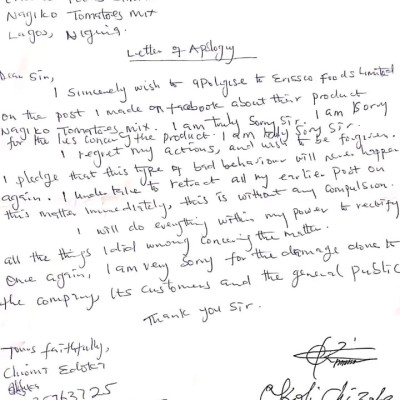 Nagiko Tomatoes mix
Lagos, Nigeria.
Letter of Apology
Dear Sir,
I sincerely wish to apologise to Erissco Foods Limited
on the post I made on facebook about their product
Nagiko Tomatoes mix. I am truly Sorry Sir. I am Sorry
for the lies concerning the product. I am Sorry Sir.
I regret my actions, and wish to be forgiven.
I pledge that this type of bad behaviour will never happen
again. I undertake to retract all my earlier post on
this matter immediately, this is without any compulsion.
I will do everything within my power to rectify
all the things I did wrong concering the matter.
Once again, I am very Sorry for the damage done to
the company, Its customers and the general public
Thank you Sir.
Yours faithfully,
Chioma